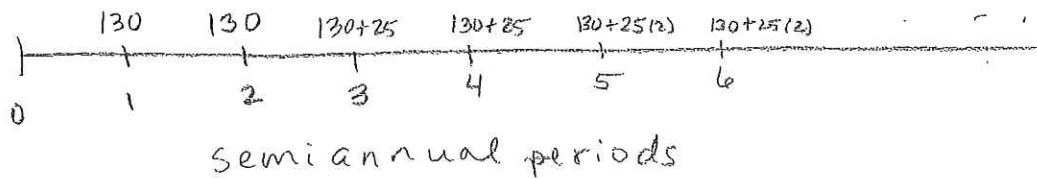 130 130 130+25 130+25 130+25(2) 130+25(2) . . .
0 1 2 3 4 5 6
semiannual periods